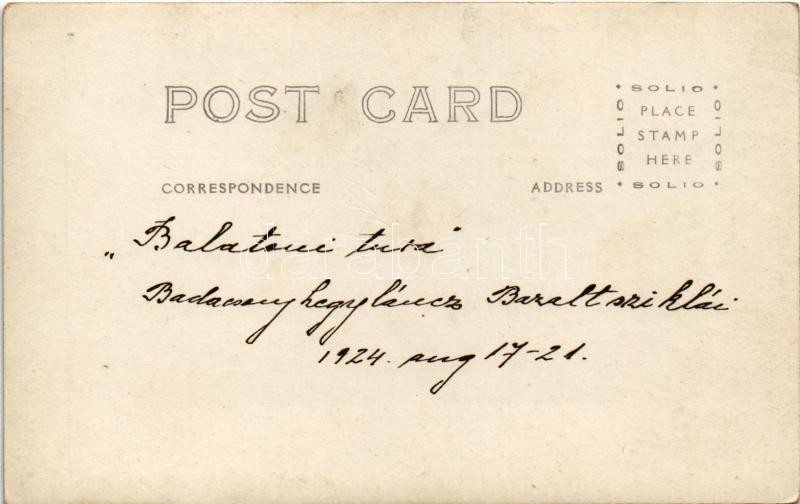 POST CARD
SOLIO
SOLIO PLACE SOLIO
STAMP
HERE
CORRESPONDENCE ADDRESS SOLIO
„Balatoni tura"
Badacsonyhegyláncz Bazaltsziklái
1924. aug 17-21.
darabanth